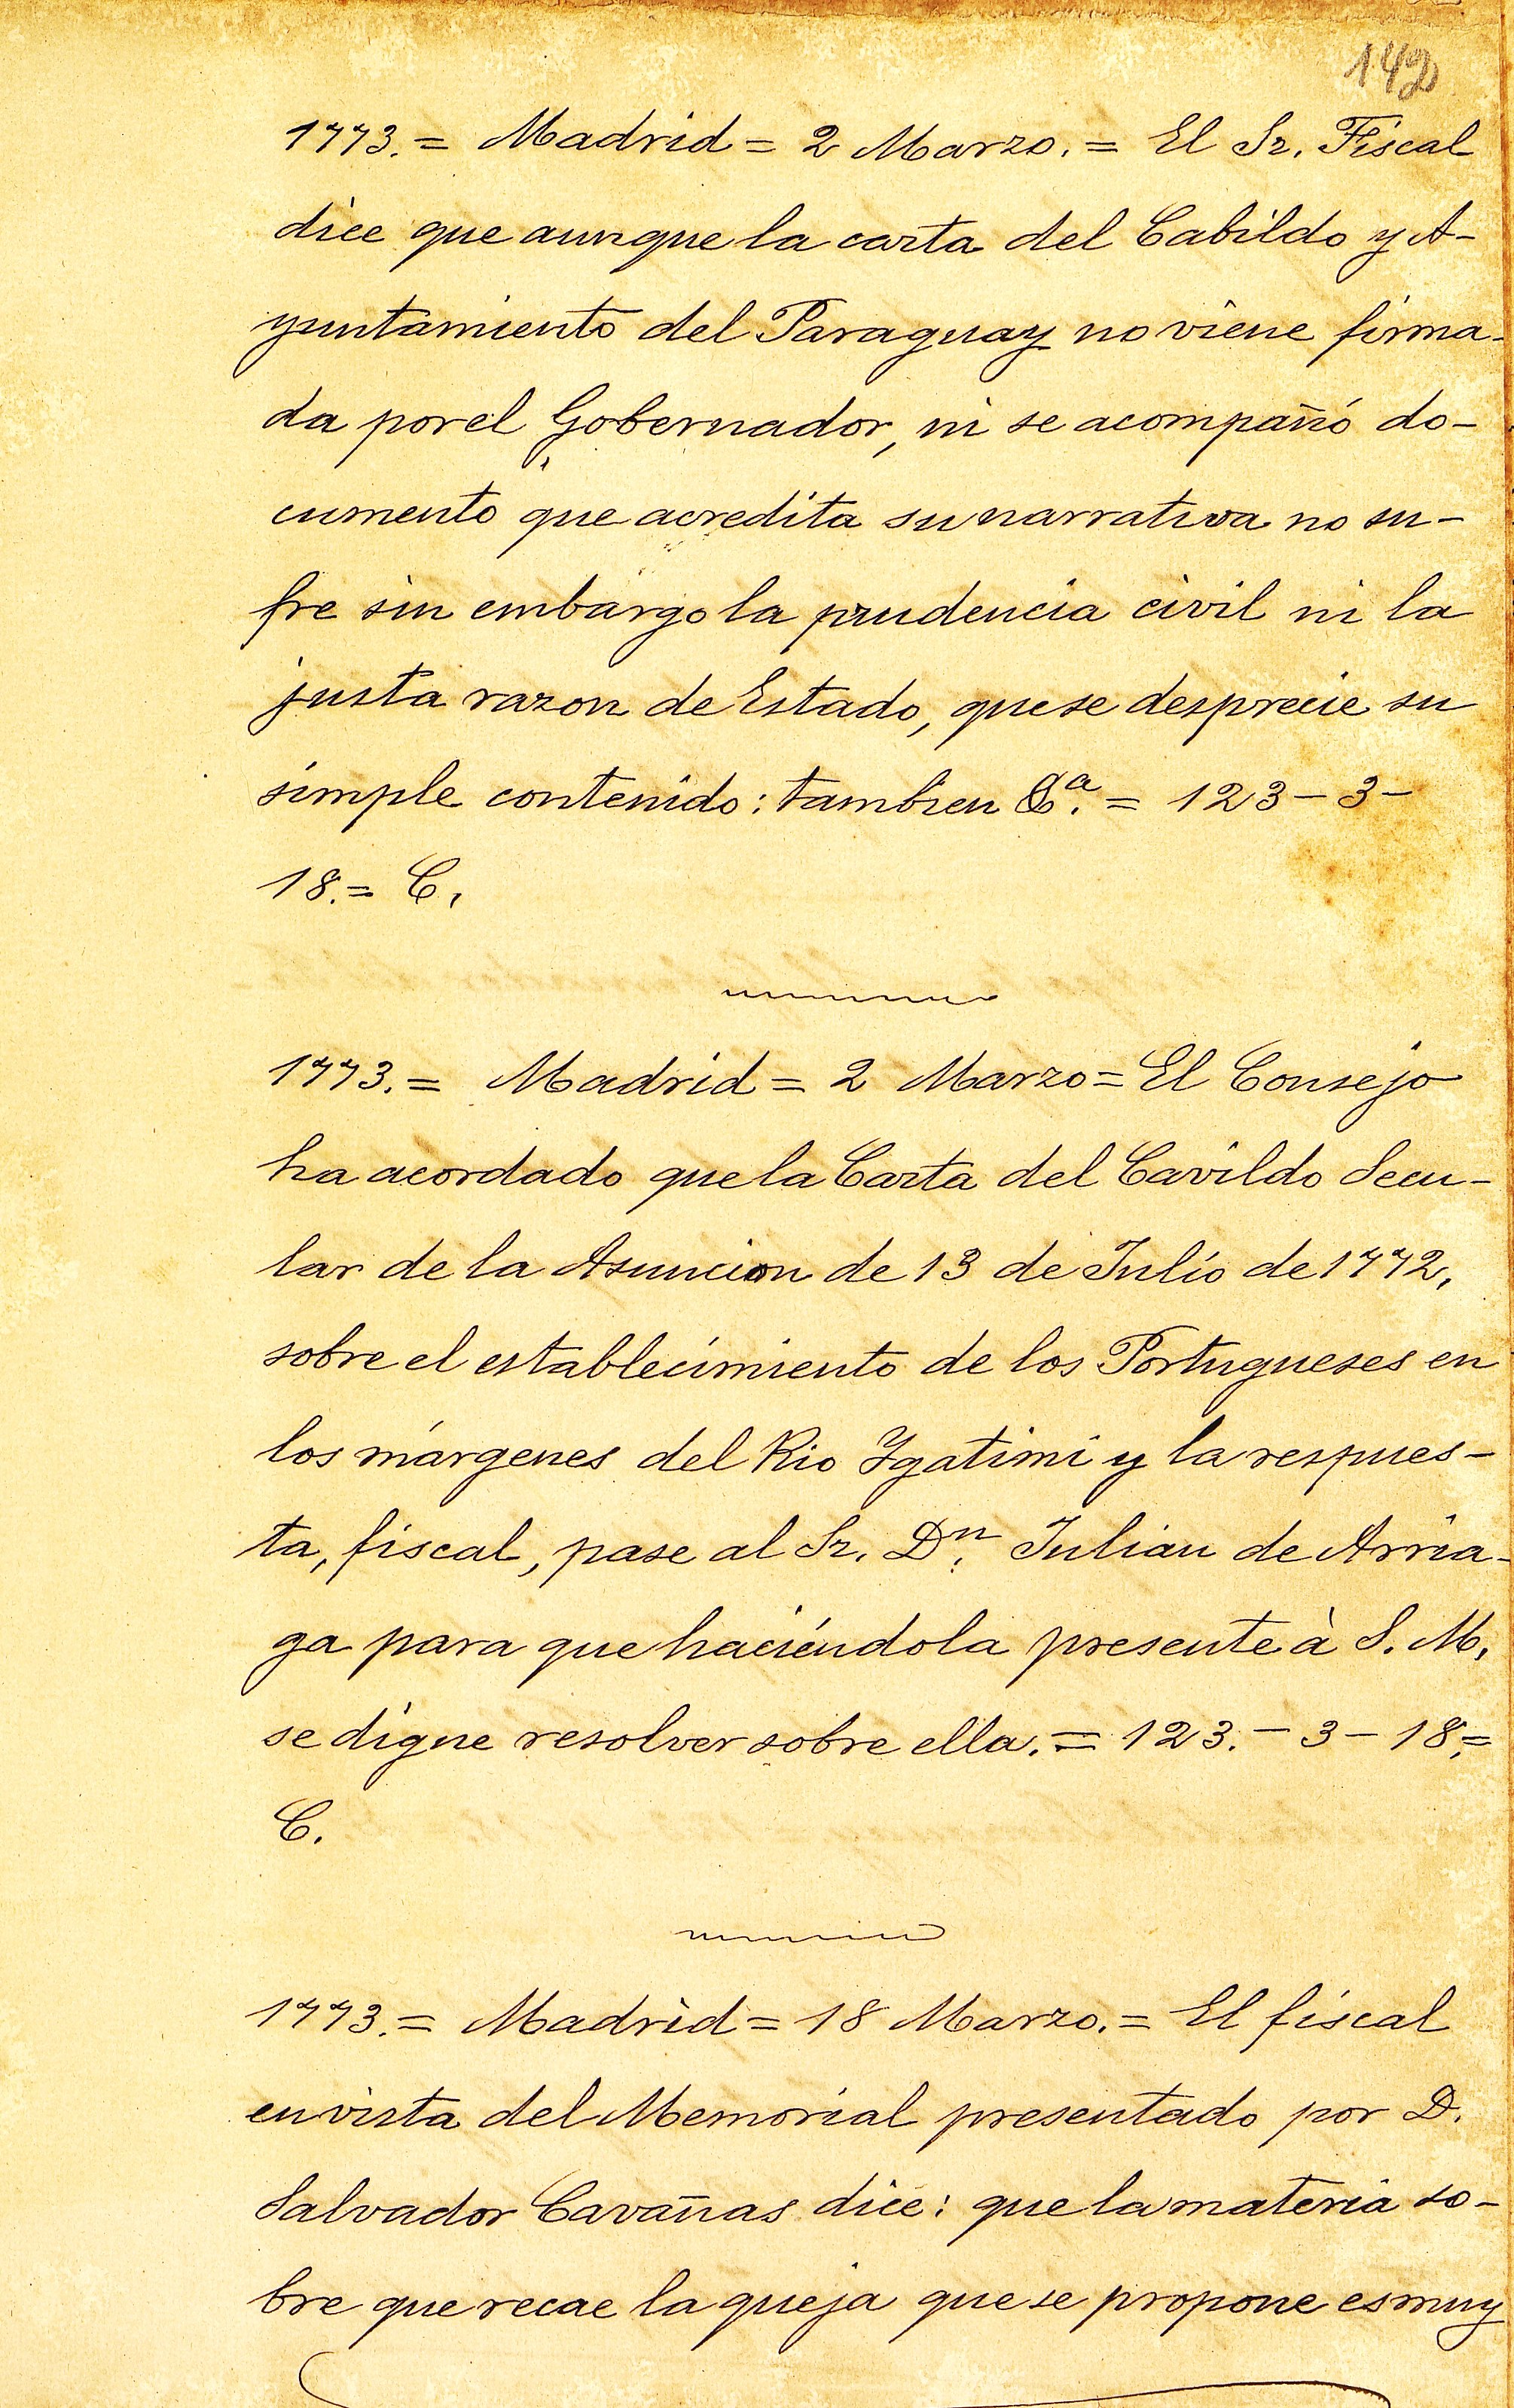 142
1773.= Madrid = 2 Marzo. = El Sr. Fiscal
dice que aunque la carta del Cabildo y A-
yuntamiento del Paraguay no viene firma-
da por el Gobernador, ni se acompañó do-
cumento que acredita su narrativa no su-
fre sin embargo la prudencia civil ni la
justa razon de Estado, que se desprecie su
simple contenido: tambien &a. = 123-3-
18.= C.
1773.= Madrid = 2 Marzo = El Consejo
ha acordado que la Carta del Cavildo Secu-
lar de la Asuncion de 13 de Julio de 1772,
sobre el establecimiento de los Portugueses en
los márgenes del Rio Igatimi y la respues-
ta, fiscal, pase al Sr. Dn. Julian de Arria-
ga para que haciéndola presente à S. M.
se digne resolver sobre ella. = 123.- 3- 18.=
C.
1773.= Madrid = 18 Marzo. = El fiscal
en vista del Memorial presentado por D.
Salvador Cavañas dice: que la materia so-
bre que recae la queja que se propone es muy